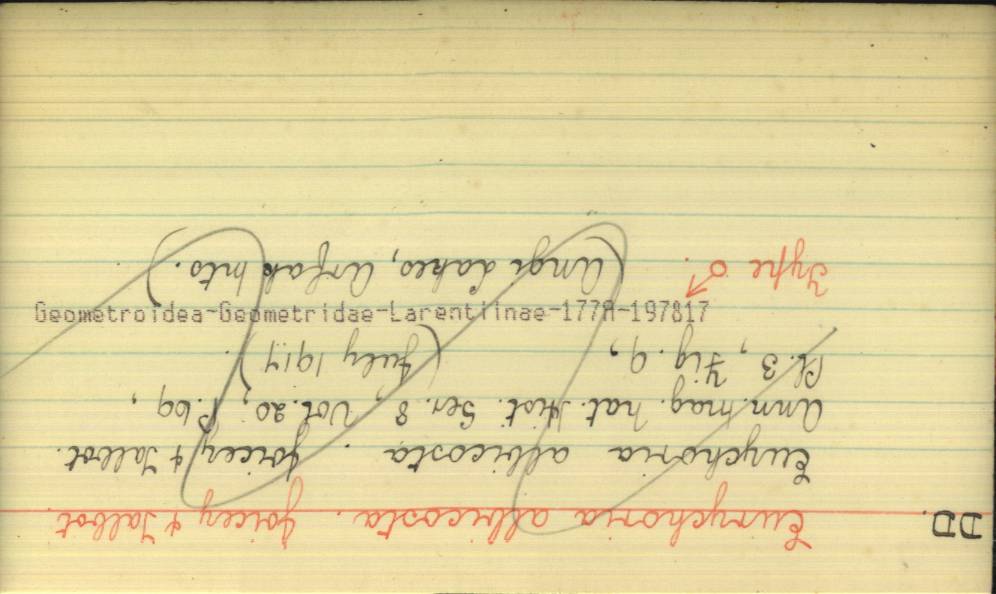 DD.
Eurychoria albicosta. Joicey & Talbot.
Eurychoria albicosta. Joicey & Talbot.
Ann. mag. nat. Hist. Ser. 8, Vol. 20, P. 69,
Pl. 3, Fig. 9, (July 1917).
Type ♂. (Angi Lakes, Arfak Mts.)
Geometroidea-Geometridae-Larentiinae-177A-197817